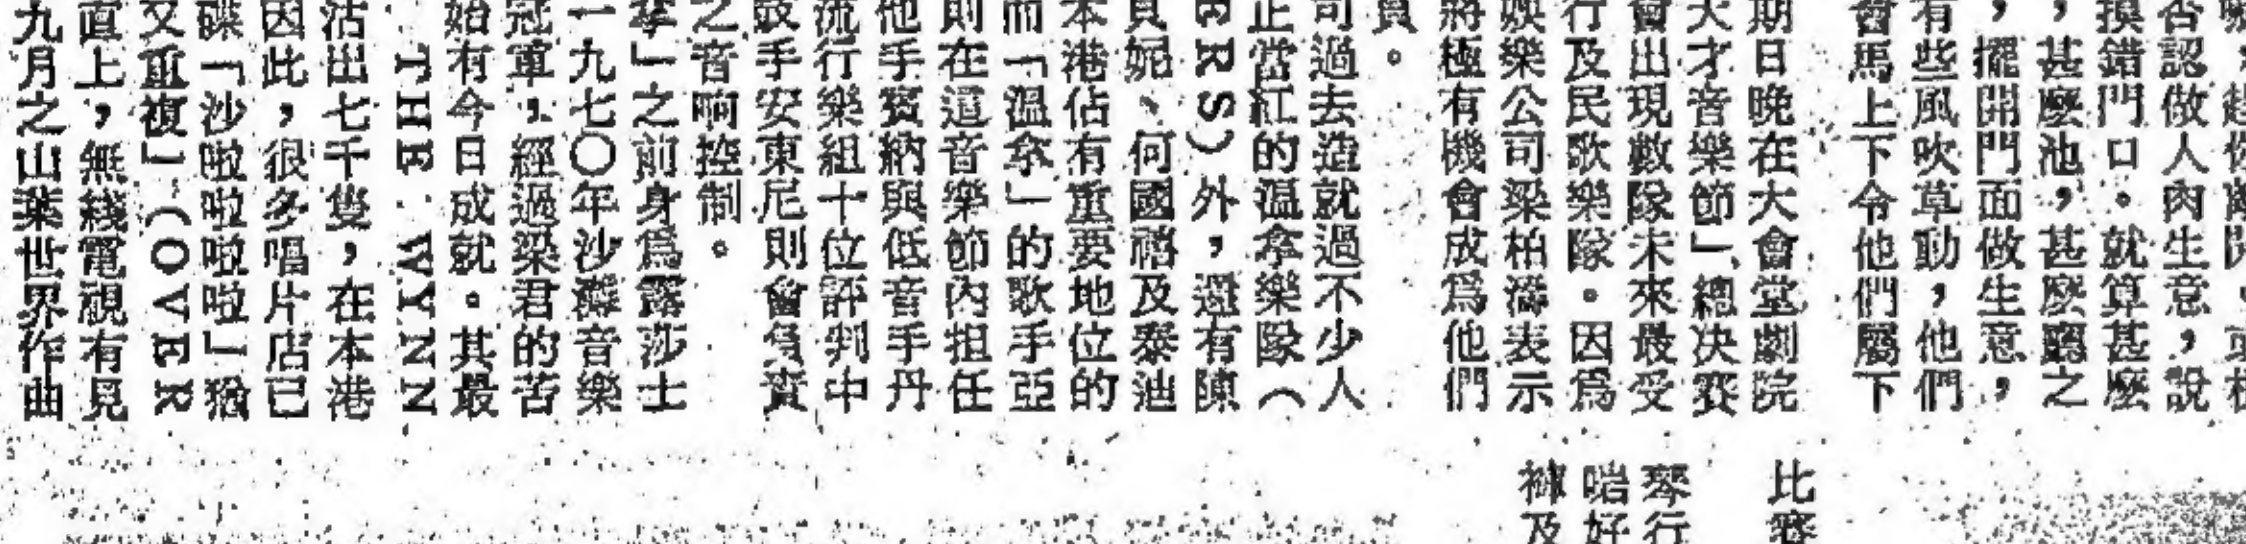 否認做人肉生意，說
摸錯門口。就算甚麼
，甚麼池，甚麼廳之
，擺開門面做生意，
有些風吹草動，他們
會馬上下令他們屬下
期日晚在大會堂劇院
天才音樂節」總決賽
會出現數隊未來最受
行及民歌樂隊。因爲
娛樂公司梁柏濤表示
將極有機會成爲他們
員。
司過去造就過不少人
正當紅的溫拿樂隊（
ERS）外，還有陳
妮、何國禧及泰迪
本港佔有重要地位的
而「溫拿」的歌手亞
則在這音樂節內担任
他手賓納與低音手丹
流行樂組十位評判中
鼓手安東尼則會負責
之音响控制。
拿」之前身爲露莎士
一九七〇年沙灘音樂
冠軍，經過梁君的苦
始有今日成就。其最
THE WYNN
沽出七千隻，在本港
因此，很多唱片店已
碟「沙啦啦啦啦」猶
又重複」（OVER
直上，無綫電視有見
九月之山葉世界作曲
比賽
琴行
啱好
褲及